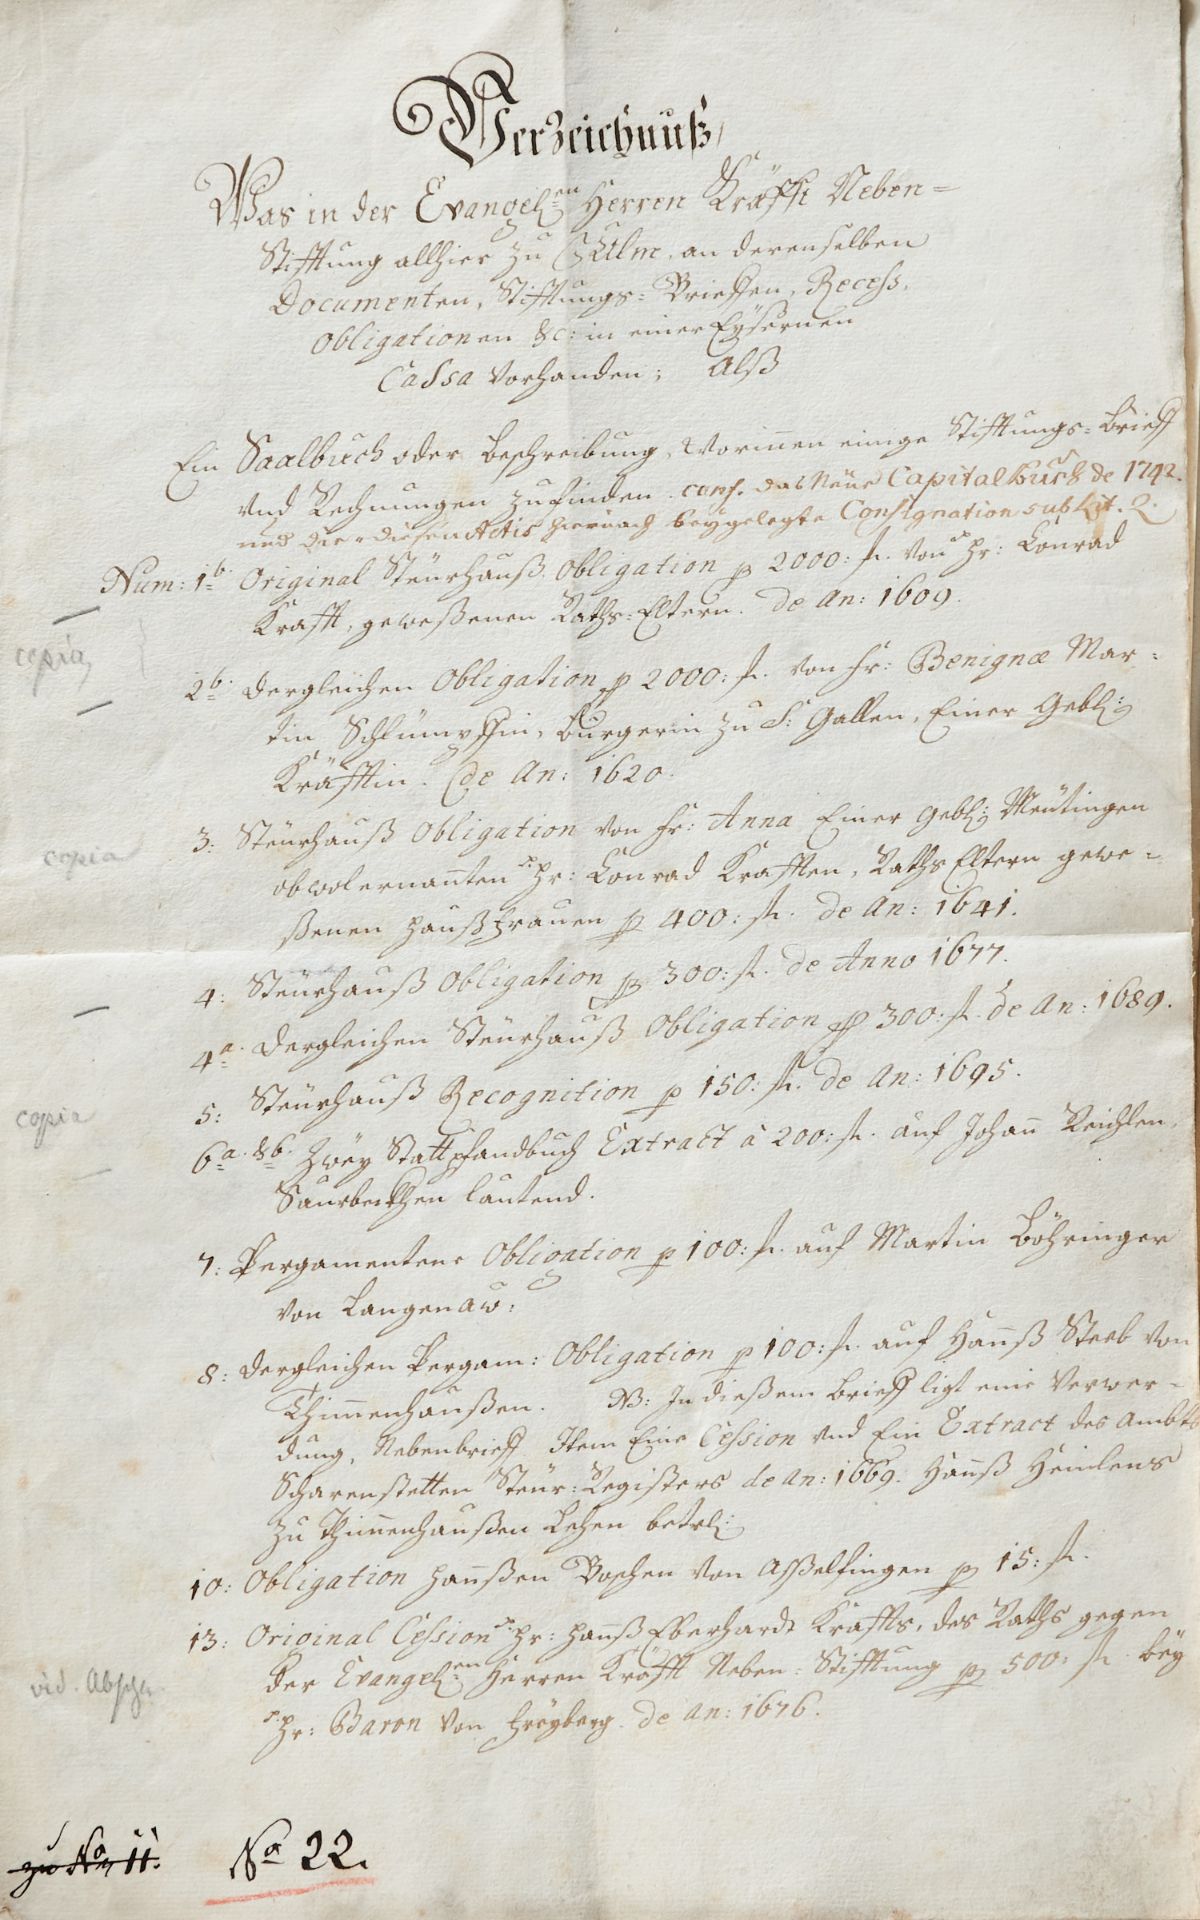 Verzeichnuß,
Was in der Evangel:en Herren Kräfft Neben=
Stifftung allhier zu Ulm, an derenselben
Documenten, Stifftungs=Brieffen, Recess,
Obligationen &c: in einer Eysernen
Cassa vorhanden; Alß
Ein Saalbuch oder Beschreibung, Worinnen einige Stifftungs=Brieff
und Rechnungen zu finden. conf. das Neue Capitalbuch de 1742.
und die diesen Actis hernach beygelegte Consignation sub Lit. Q.
Num: 1b. Original Steurhauß Obligation p 2000: fl. von Hr: Conrad
Krafft, geweßenen Raths=Eltern. de An: 1609.
copia,
2b. dergleichen Obligation p 2000: fl. von Fr: Benignæ Mar=
tin Schlumpffin, Burgerin zu S: Gallen, Einer Gebl:
Kräfftin. de An: 1620.
3: Steurhauß Obligation von Fr: Anna Einer Gebl: Meutingen
copia
obwolernannten Hr: Conrad Krafften, Raths Eltern gewe=
ßenen Haußfrauen p 400: fl. de An: 1641.
4: Steurhauß Obligation p 300: fl. de Anno 1677.
4a. dergleichen Steurhauß Obligation p 300: fl. de An: 1689.
5: Steurhauß Recognition p 150: fl. de An: 1695.
copia
6a. & b. Zwey Statt Pfandbuch Extract à 200: fl. auf Johann Reichlen,
Saurbeckhen lautend.
7: Pergamentene Obligation p 100: fl. auf Martin Böhringer
von Langenaw:
8: dergleichen Pergam: Obligation p 100: fl. auf Hannß Steeb von
Thimmenhaußen. NB: In dießem Brieff ligt eine Verwen=
dung, Nebenbrieff, Item Eine Cession und Ein Extract des Ambts
Scharenstetten Steur=Registers de An: 1669. Hannß Heinlens
zu Thimmenhaußen Lehen betrl:
10: Obligation Hannßen Boschen von Aßelfingen p 15: fl.
13: Original Cession Hr: Hannß Eberhardt Kraffts, des Raths gegen
der Evangel:en Herren Kräfft Neben=Stifftung p 500: fl. bey
vid. Absch.
Hr: Baron von Freyberg. de An: 1676.
zu No. 11.
No. 22.